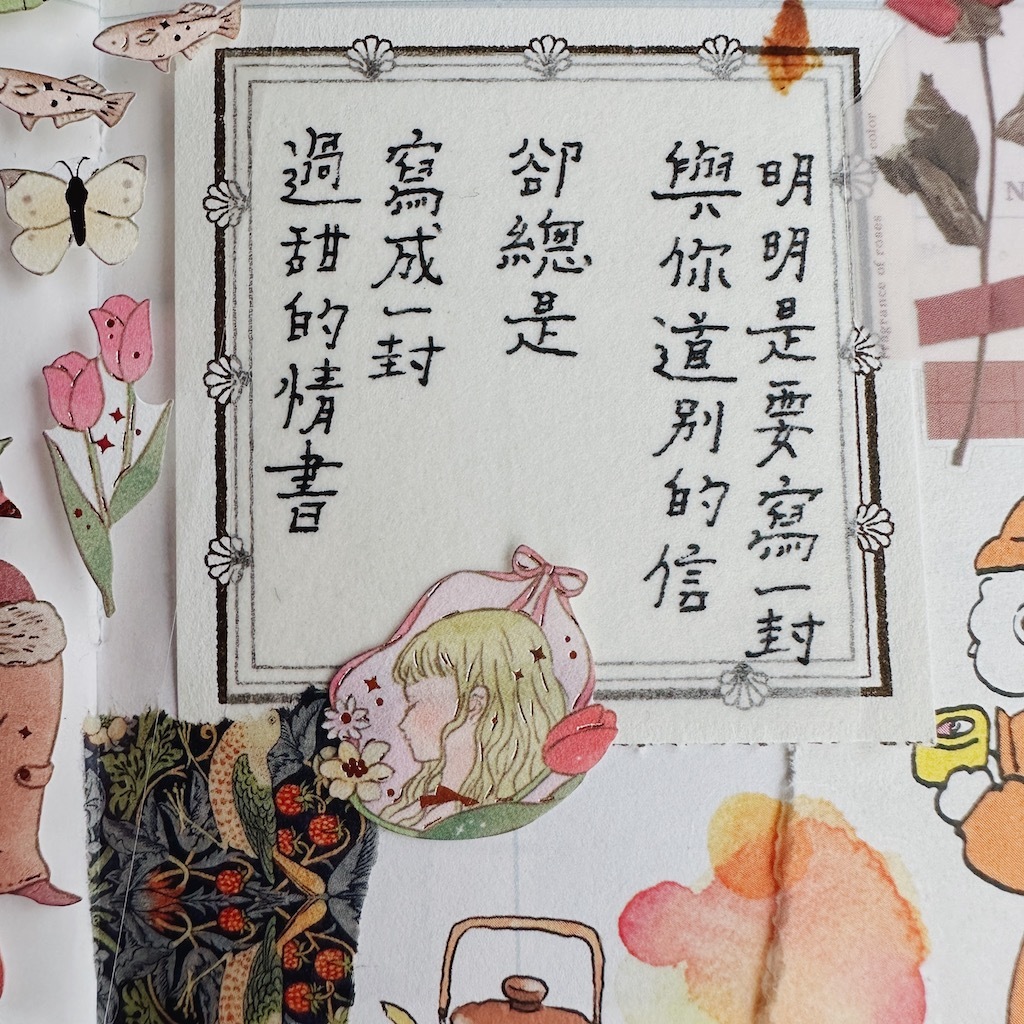 明明是要寫一封
與你道別的信
卻總是
寫成一封
過甜的情書
fragrance of roses
color
N